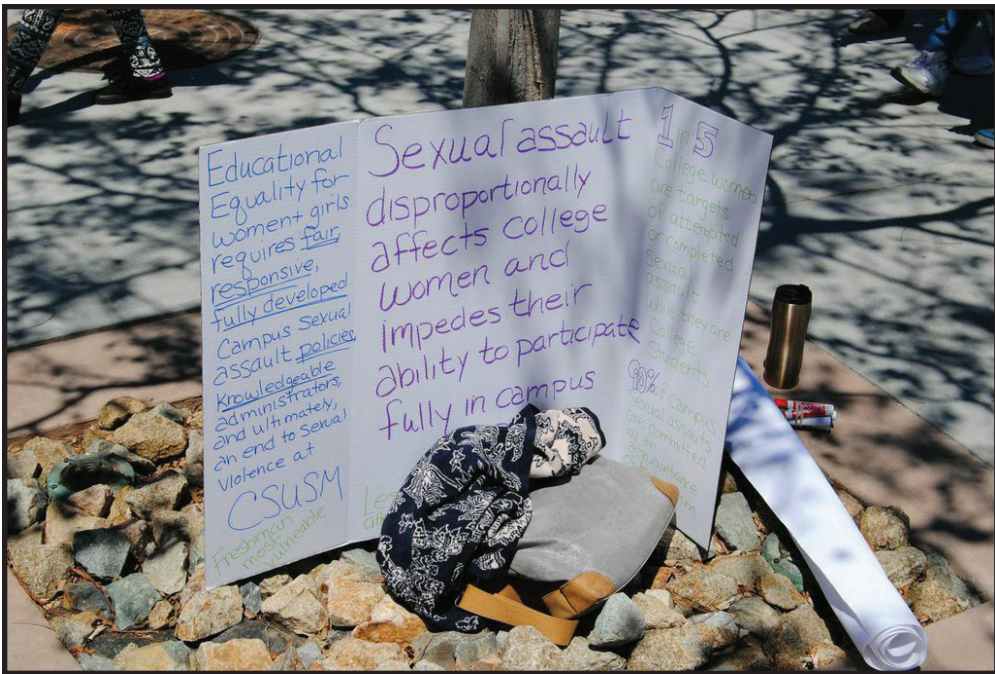 Educational
Equality for
women + girls
requires fair,
responsive,
fully developed
Campus Sexual
assault policies,
Knowledgeable
administrators,
and ultimately,
an end to sexual
violence at
CSUSM
Freshman
most
vulneable
Sexual assault
disproportionally
affects college
women and
impedes their
ability to participate
fully in campus
1 in 5
College women
are targets
of attempted
or completed
sexual
assault
while they are
College
Students
90% of campus
sexual assaults
are committed
by an